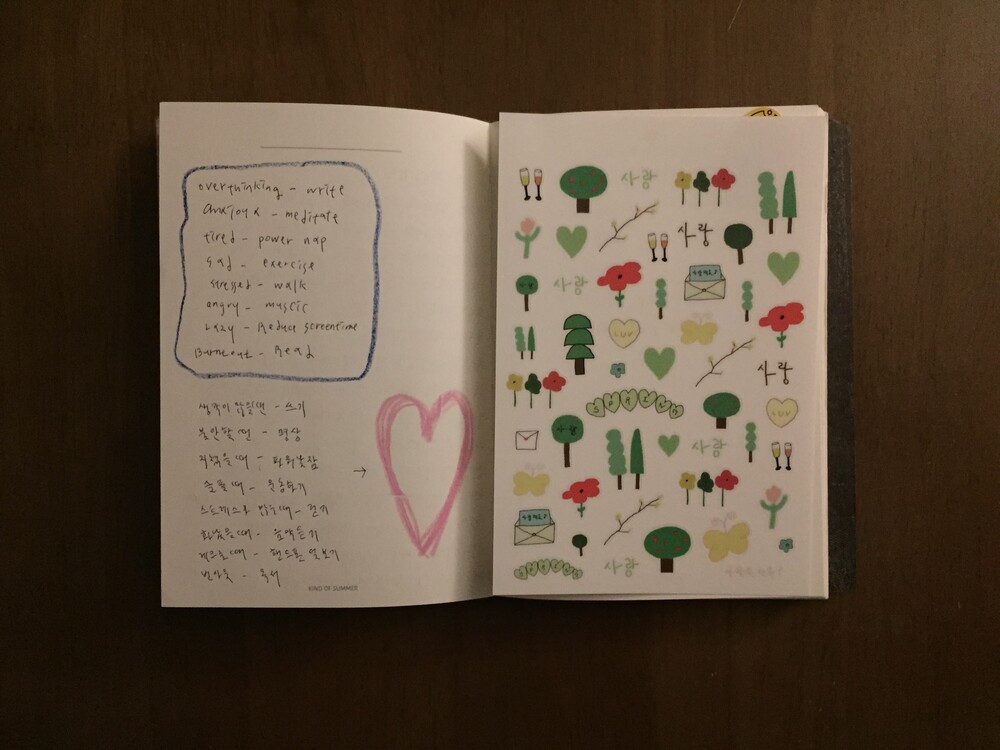 overthinking - write
Anxious - meditate
tired - power nap
Sad - exercise
stressed - walk
angry - muscic
Lazy - Reduce screentime
Burntout - Read
생각이 많을때 - 쓰기
불안할때 - 명상
지쳤을때 - 파워낮잠
슬플때 - 운동하기
스트레스로 - 걷기
화났을때 - 음악듣기
- 핸드폰 덜보기
번아웃 - 독서
KIND OF SUMMER
사랑
사랑
사랑
LUV
사랑
LUV
사랑
사랑